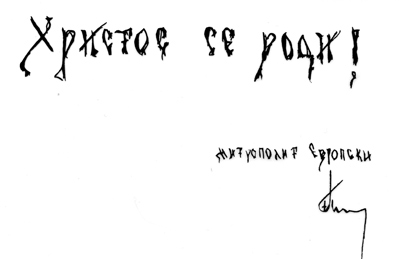 Христос се роди!
митрополит Европски